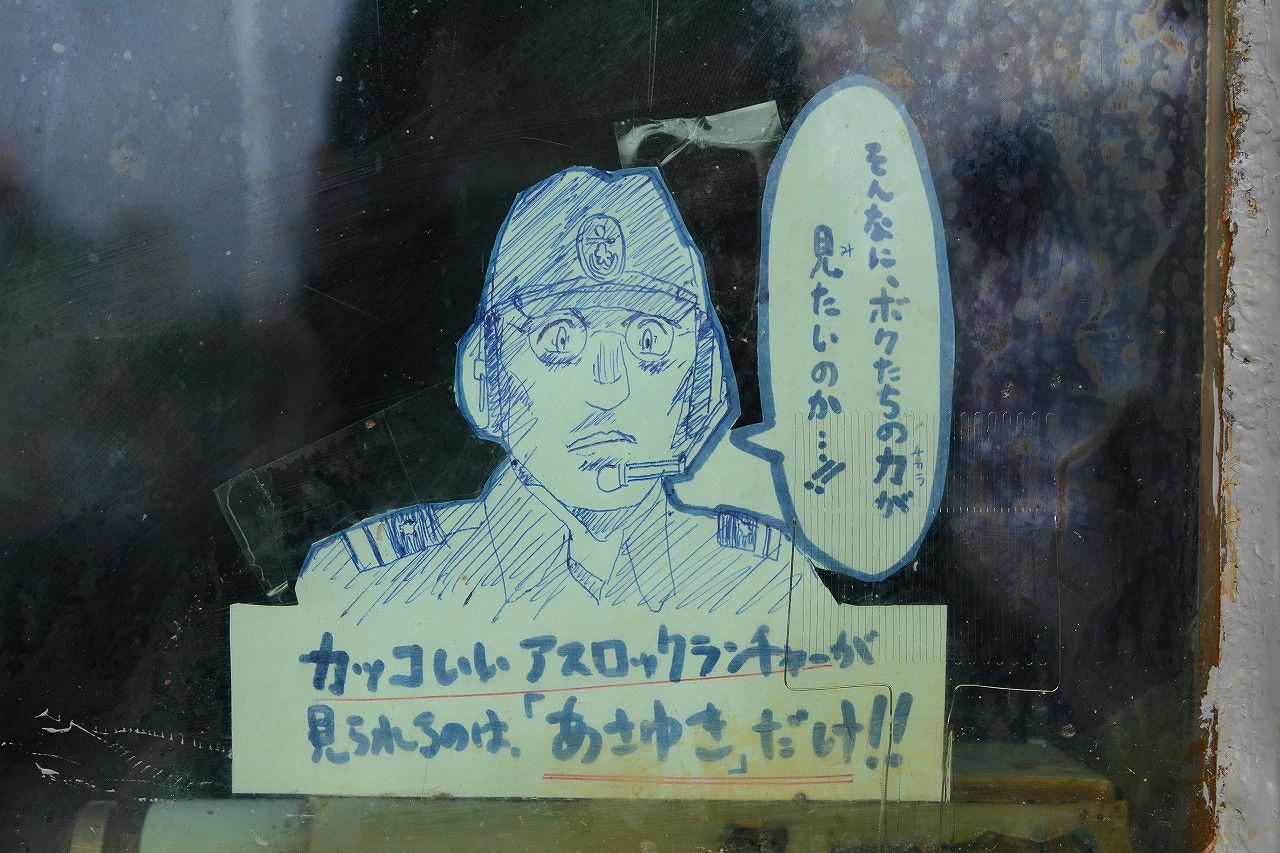 そんなに、ボクたちの力が
チカラ
見たいのか…!!
ミ
カッコいい アスロックランチャーが
見られるのは、「あさゆき」だけ!!